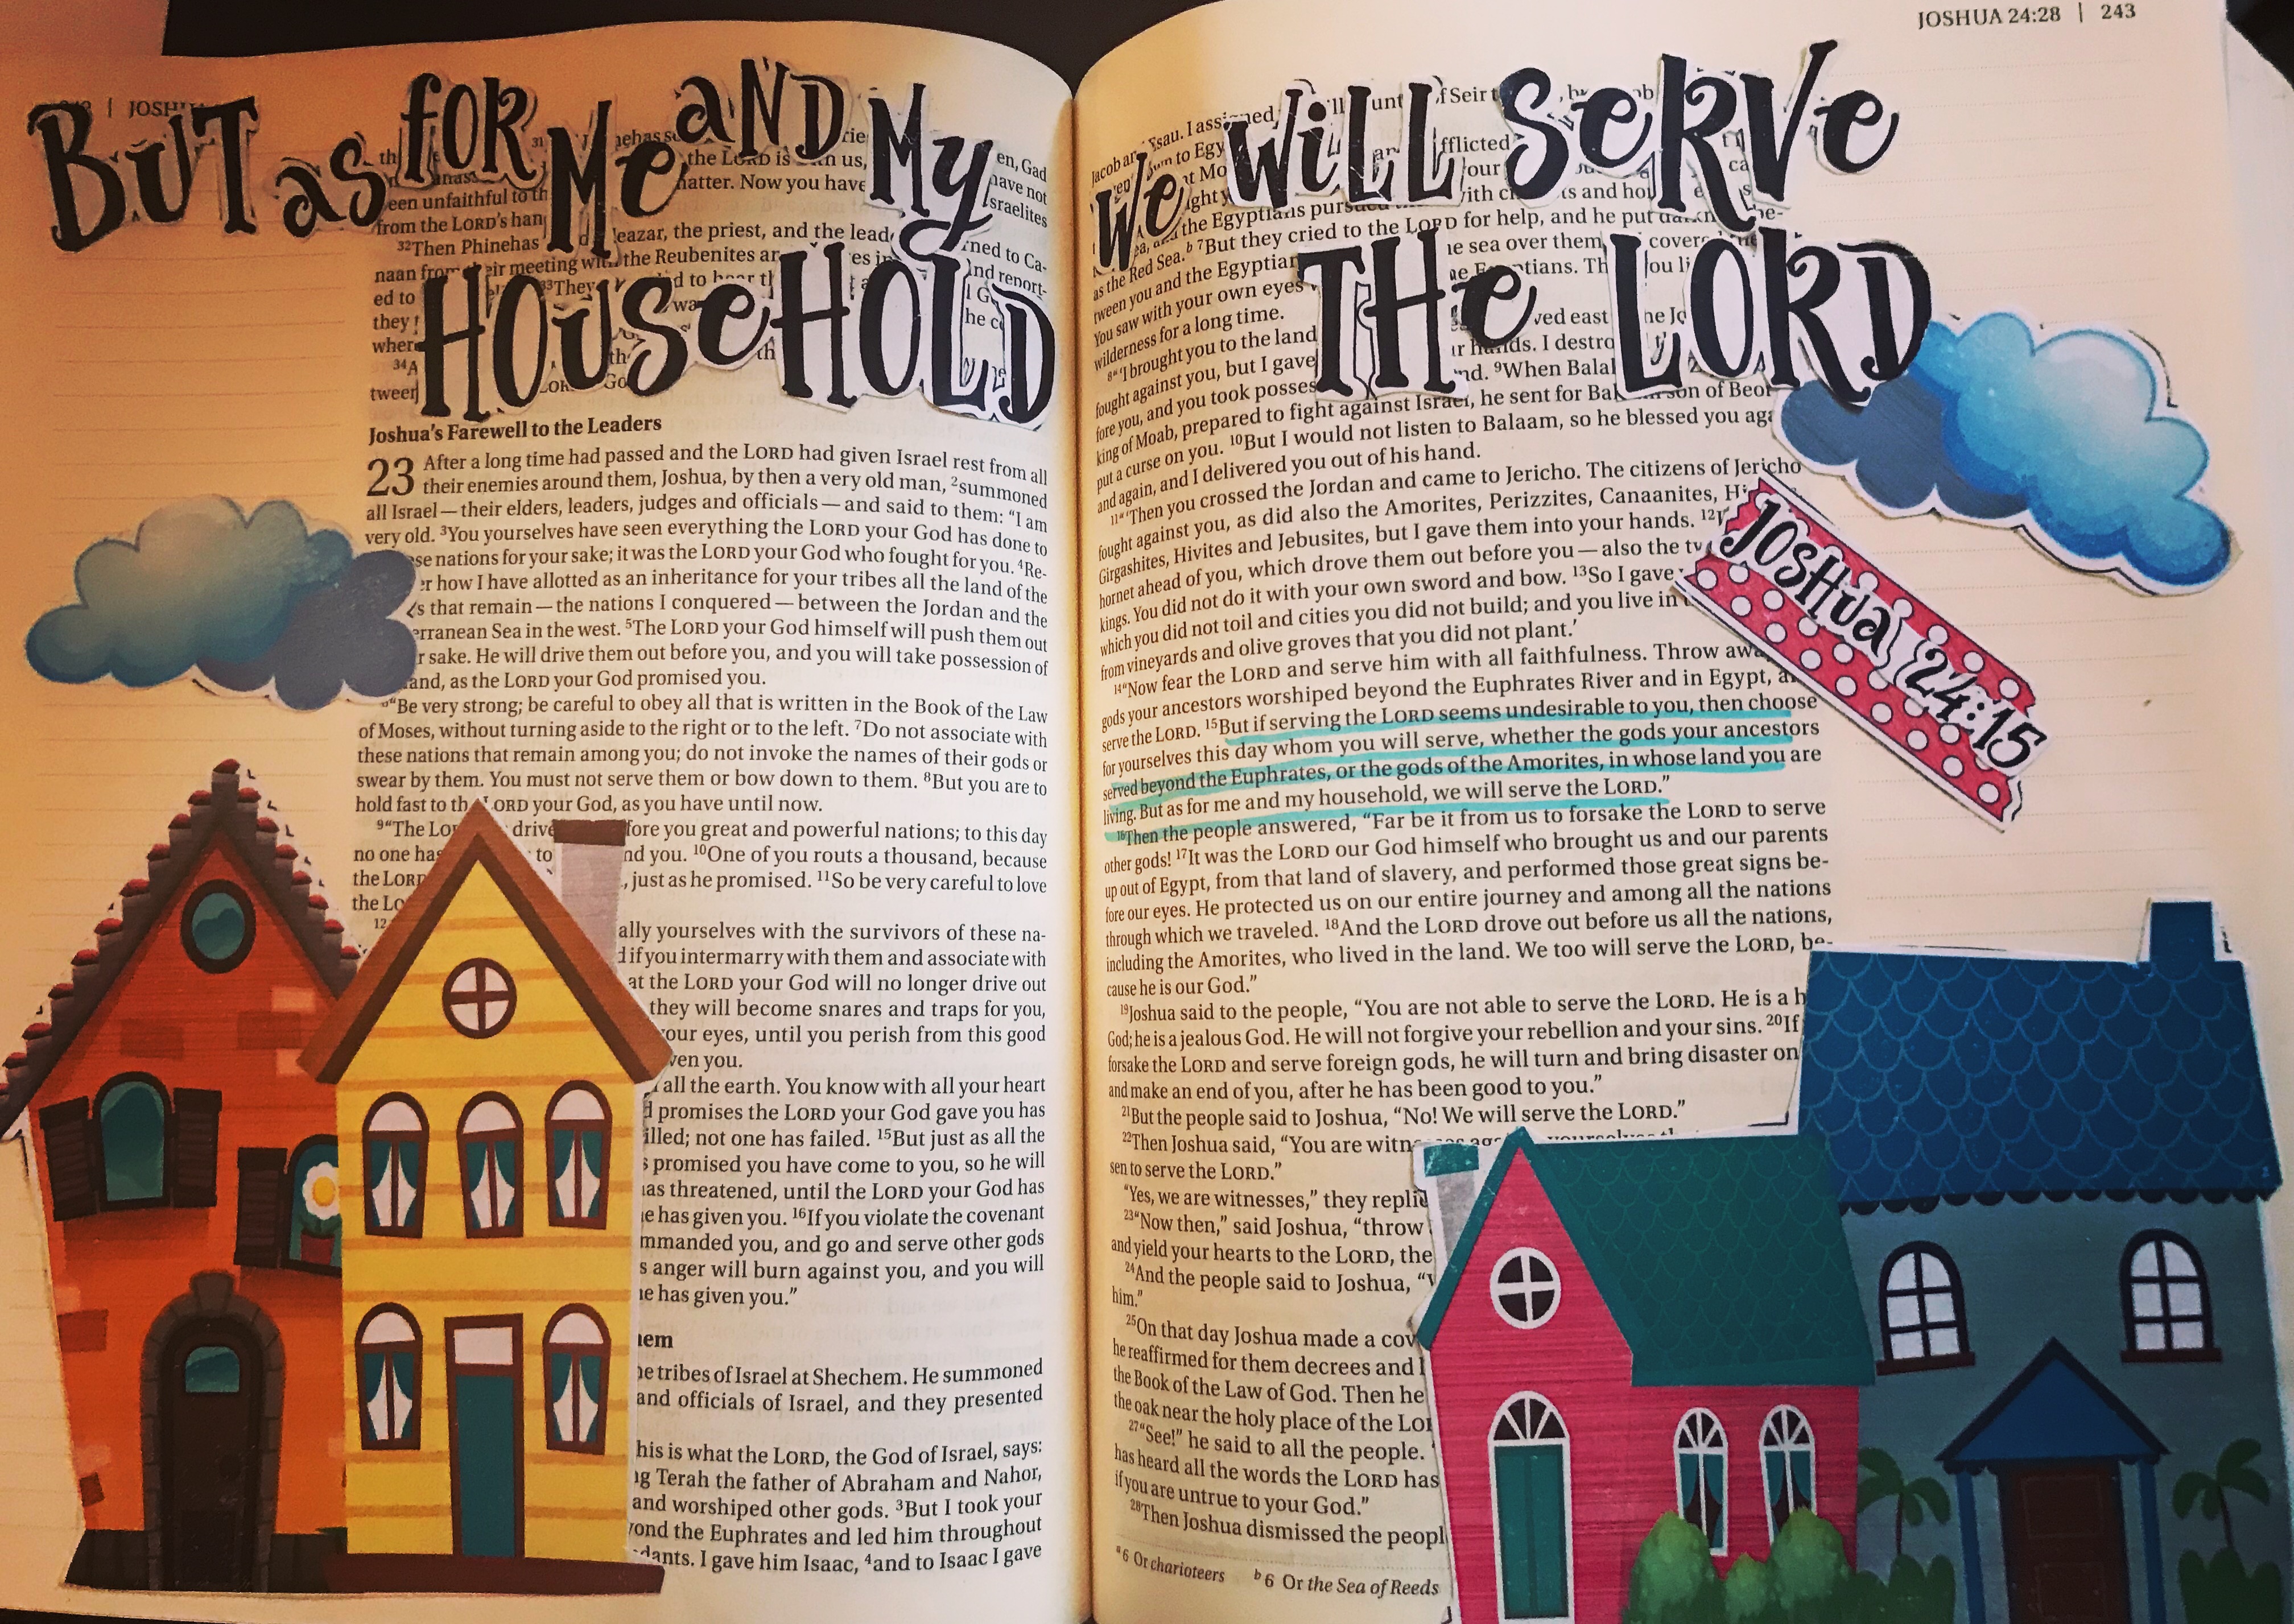 BUT as FOR Me aND My
HOUSeHOLD
JOSH
31
the LORD is
us,
en, Gad
natter. Now you have
have not
een unfaithful to th
sraelites
from the LORD's han
32Then Phinehas
eazar, the priest, and the lead
rned to Ca-
naan from
eir meeting with the Reubenites ar
33They
ed to
they
34A
tween
Joshua's Farewell to the Leaders
23 After a long time had passed and the LORD had given Israel rest from all
their enemies around them, Joshua, by then a very old man, 2summoned
all Israel—their elders, leaders, judges and officials—and said to them: “I am
very old. 3You yourselves have seen everything the LORD your God has done to
se nations for your sake; it was the LORD your God who fought for you. 4Re-
er how I have allotted as an inheritance for your tribes all the land of the
s that remain—the nations I conquered—between the Jordan and the
erranean Sea in the west. 5The LORD your God himself will push them out
r sake. He will drive them out before you, and you will take possession of
and, as the LORD your God promised you.
“Be very strong; be careful to obey all that is written in the Book of the Law
of Moses, without turning aside to the right or to the left. 7Do not associate with
these nations that remain among you; do not invoke the names of their gods or
swear by them. You must not serve them or bow down to them. 8But you are to
hold fast to the LORD your God, as you have until now.
9“The Lo drive fore you great and powerful nations; to this day
no one has to nd you. 10One of you routs a thousand, because
the LORD , just as he promised. 11So be very careful to love
the Lo
12
ally yourselves with the survivors of these na-
d if you intermarry with them and associate with
at the LORD your God will no longer drive out
they will become snares and traps for you,
our eyes, until you perish from this good
ven you.
all the earth. You know with all your heart
d promises the LORD your God gave you has
illed; not one has failed. 15But just as all the
s promised you have come to you, so he will
as threatened, until the LORD your God has
e has given you. 16If you violate the covenant
mmanded you, and go and serve other gods
s anger will burn against you, and you will
e has given you.”
hem
he tribes of Israel at Shechem. He summoned
and officials of Israel, and they presented
his is what the LORD, the God of Israel, says:
g Terah the father of Abraham and Nahor,
and worshiped other gods. 3But I took your
yond the Euphrates and led him throughout
dants. I gave him Isaac, 4and to Isaac I gave
JOSHUA 24:28 | 243
We WiLL SeRVe
THe LORD
Jacob an Esau. I assigned
f Seir t
wn to Egy
fflicted
the Egyptians pursued
ith ch ts and ho
as the Red Sea.b 7But they cried to the LORD for help, and he put darkn be-
tween you and the Egyptian he sea over them covered
You saw with your own eyes
wilderness for a long time.
8“‘I brought you to the land ved east
fought against you, but I gave r hands. I destro
fore you, and you took posses nd. 9When Bala
king of Moab, prepared to fight against Israel, he sent for Ba son of Beor
put a curse on you. 10But I would not listen to Balaam, so he blessed you aga
and again, and I delivered you out of his hand.
11“‘Then you crossed the Jordan and came to Jericho. The citizens of Jericho
fought against you, as did also the Amorites, Perizzites, Canaanites, Hi
Girgashites, Hivites and Jebusites, but I gave them into your hands. 12
hornet ahead of you, which drove them out before you—also the tw
kings. You did not do it with your own sword and bow. 13So I gave
which you did not toil and cities you did not build; and you live in
from vineyards and olive groves that you did not plant.’
JOSHua 24:15
14“Now fear the LORD and serve him with all faithfulness. Throw awa
gods your ancestors worshiped beyond the Euphrates River and in Egypt, a
serve the LORD. 15But if serving the LORD seems undesirable to you, then choose
for yourselves this day whom you will serve, whether the gods your ancestors
served beyond the Euphrates, or the gods of the Amorites, in whose land you are
living. But as for me and my household, we will serve the LORD.”
16Then the people answered, “Far be it from us to forsake the LORD to serve
other gods! 17It was the LORD our God himself who brought us and our parents
up out of Egypt, from that land of slavery, and performed those great signs be-
fore our eyes. He protected us on our entire journey and among all the nations
through which we traveled. 18And the LORD drove out before us all the nations,
including the Amorites, who lived in the land. We too will serve the LORD, be-
cause he is our God.”
19Joshua said to the people, “You are not able to serve the LORD. He is a h
God; he is a jealous God. He will not forgive your rebellion and your sins. 20If
forsake the LORD and serve foreign gods, he will turn and bring disaster on
and make an end of you, after he has been good to you.”
21But the people said to Joshua, “No! We will serve the LORD.”
22Then Joshua said, “You are witn
sen to serve the LORD.”
“Yes, we are witnesses,” they replie
23“Now then,” said Joshua, “throw
and yield your hearts to the LORD, the
24And the people said to Joshua, “
him.”
25On that day Joshua made a cov
he reaffirmed for them decrees and l
the Book of the Law of God. Then he
the oak near the holy place of the Lo
27“See!” he said to all the people.
has heard all the words the LORD has
if you are untrue to your God.”
28Then Joshua dismissed the peopl
a6 Or charioteers b6 Or the Sea of Reeds